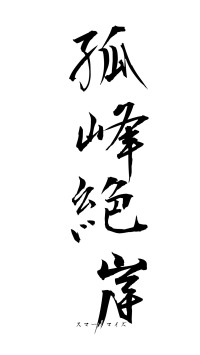 孤峰絶岸
スマートマイズ